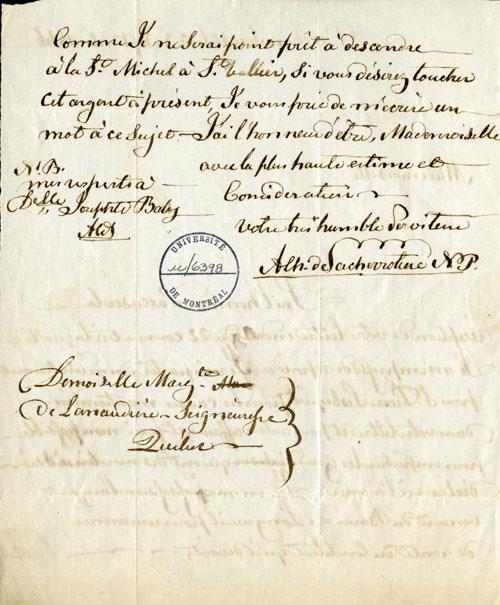 Comme Je ne serai point prêt à descendre
à la St. Michel à St. Vallier, si vous désirez toucher
cet argent à présent, Je vous prie de m'écrire un
mot à ce sujet — J'ai l'honneur d'être, Mademoiselle
avec la plus haute estime et
Considération
votre très humble Serviteur
N.B.
mes respects à
Delle Josephte Baby
AldL
Alh. de Lachevrotiere N.P.
UNIVERSITÉ
u/6398
DE MONTRÉAL
Demoiselle Marg.te
de Lanaudière — Seigneuresse
Québec